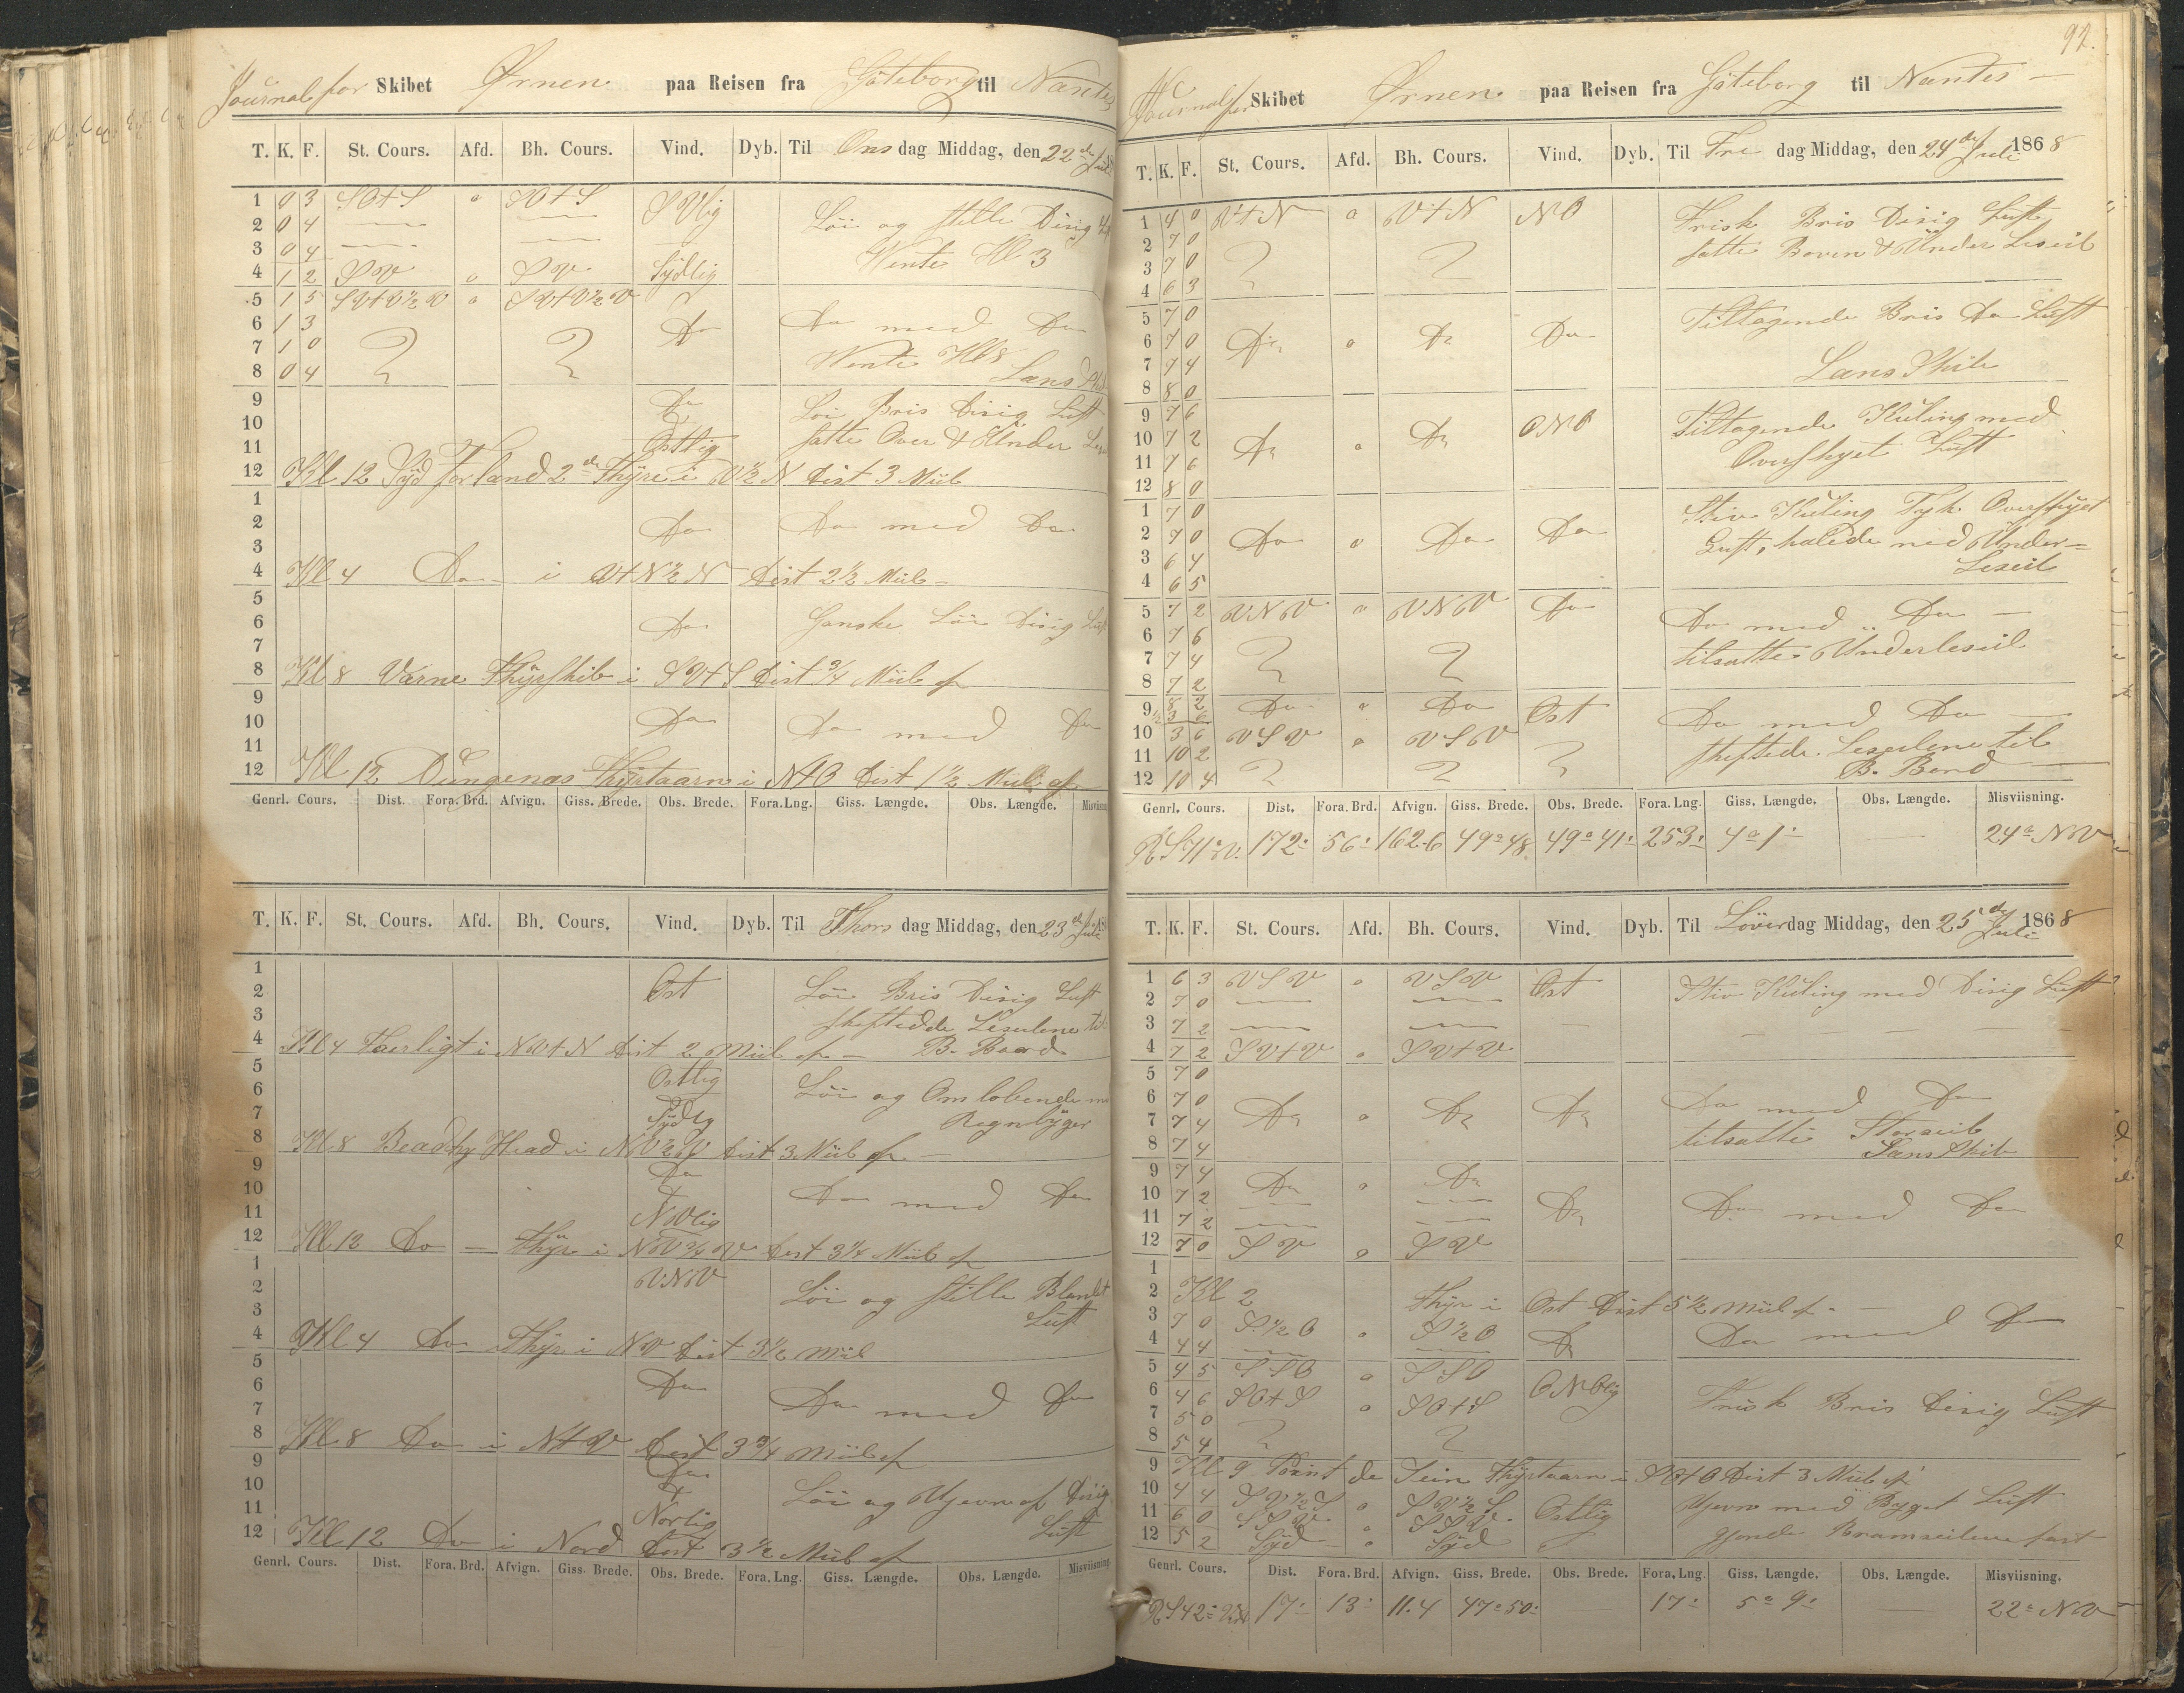 Journal for Skibet Ørnen paa Reisen fra Göteborg til Nantes
T. K. F. St. Cours. Afd. Bh. Cours. Vind. Dyb. Til Onsdag Middag, den 22de Juli
1 0 3 SO+S o SO+S SVlig Löi og stille Disig
2 0 4
3 0 4 Wente Kl 3
4 1 2 SV o SV Sydlig
5 1 5 SV+V½V o SV+V½V
6 1 3 Do Do med Do
7 1 0 Wente Kl 8
8 0 4 Lans Skib
9 Do Löi Bris Disig Luft
10
11 Ostlig satte Over & Under
12 Kl 12 Syd Forland 2de Fhyre i V½N Dist 3 Miil
1
2 Do Do med Do
3
4 Kl 4 Do i V+N½N Dist 2½ Miil
5
6 Do Ganske Löi Disig Luft
7
8 Kl 8 Varne Fhyrskib i SV+S Dist ¾ Miil af
9
10 Do Do med Do
11
12 Kl 12 Dungenas Fhyrtaarn i N+O Dist 1½ Miil af
Genrl. Cours. Dist. Fora. Brd. Afvign. Giss. Brede. Obs. Brede. Fora.Lng. Giss. Længde. Obs. Længde.
T. K. F. St. Cours. Afd. Bh. Cours. Vind. Dyb. Til Thorsdag Middag, den 23de Juli
1
2 Ost Löi Bris Disig Luft
3 skeftede Leseilene til
4 Kl 4 i NV+N Dist 2 Miil af B. Baard
5 Ostlig
6 Löi og Omlobende
7 Sydlig Regnbyger
8 Kl 8 Beachy Head i NV½V Dist 3 Miil af
9 Do
10 Do med Do
11 NVlig
12 Kl 12 Do Fhyr i NV¾V Dist 3¼ Miil af
1 VNV
2 Löi og stille Blandet
3 Luft
4 Kl 4 Do Fhyr i NV Dist 3½ Miil
5
6 Do Do med Do
7
8 Kl 8 Do i N+V Dist 3¾ Miil af
9 Do
10 Löi og Ujevn af Disig
11 Norlig Luft
12 Kl 12 Do i Nord Dist 3½ Miil af
Genrl. Cours. Dist. Fora. Brd. Afvign. Giss. Brede. Obs. Brede. Fora. Lng. Giss. Længde. Obs. Længde. Misviisning.
92.
Journal for Skibet Ørnen paa Reisen fra Göteborg til Nantes
T. K. F. St. Cours. Afd. Bh. Cours. Vind. Dyb. Til Fredag Middag, den 24de Juli 1868
1 4 0 V+N o V+N NO Frisk Bris Disig Luft
2 7 0 satte Boven & Under Leseil
3 7 0
4 6 3
5 7 0 Tiltagende Bris Do Luft
6 7 0 Do o Do Do
7 7 4 Lans Skib
8 8 0
9 7 6 Tiltagende Kuling med
10 7 2 Do o Do ONO
11 7 6 Overskyet Luft
12 8 0
1 7 0 Stiv Kuling Tyk Overskyet
2 7 0 Do o Do Do
3 6 4 Luft, halede ned Under-
4 6 5 Leseil
5 7 2 VNV o VNV Do Do med Do
6 7 6
7 7 4 tilsatte Underleseil
8 7 2
9 8 2 Do o Do Ost Do med Do
½ 3 6
10 3 6 VSV o VSV skeftede Leseilene til
11 10 2
12 10 4 B. Bord
Genrl. Cours. Dist. Fora. Brd. Afvign. Giss. Brede. Obs. Brede. Fora. Lng. Giss. Længde. Obs. Længde. Misviisning.
R S 71° V. 172: 56: 162.6 49° 48 49° 41: 253: 4° 1: 24° NV
T. K. F. St. Cours. Afd. Bh. Cours. Vind. Dyb. Til Löverdag Middag, den 25de Juli 1868
1 6 3 VSV o VSV Ost Stiv Kuling med Disig Luft
2 7 0
3 7 2
4 7 2 SV+V o SV+V
5 7 0
6 7 0 Do o Do Do Do med Do
7 7 4 tilsatte Storseil
8 7 4 Lans Skib
9 7 4 Do o Do
10 7 2 Do Do med Do
11 7 2
12 7 0 SV o SV
1
2 Kl 2 Fhyr i Ost Dist 5½ Miil af
3 7 0 S½O o S½O Do Do med Do
4 4 4
5 4 5 SSO o SSO ONOlig
6 4 6 SO+S o SO+S Frisk Bris Disig Luft
7 5 0
8 5 4
9 Kl 9 Point de Sein Fhyrtaarn i SO+O Dist 3 Miil af
10 4 4 SV½S o SV½S Ujevn med Byget Luft
11 6 0 SSV o SSV Ostlig
12 5 2 Syd o Syd gjorde Bramseilene fast
Genrl. Cours. Dist. Fora. Brd. Afvign. Giss. Brede. Obs. Brede. Fora, Lng. Giss. Længde. Obs. Længde. Misviisning.
R S 42° 17: 13: 11.4 47° 50: 17: 5° 9: 22° NV